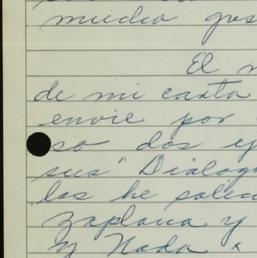 mucho gus
El m
de mi carta
envie por
so dos ej
sus "Dialog
los he
Zaplana y
y Nada